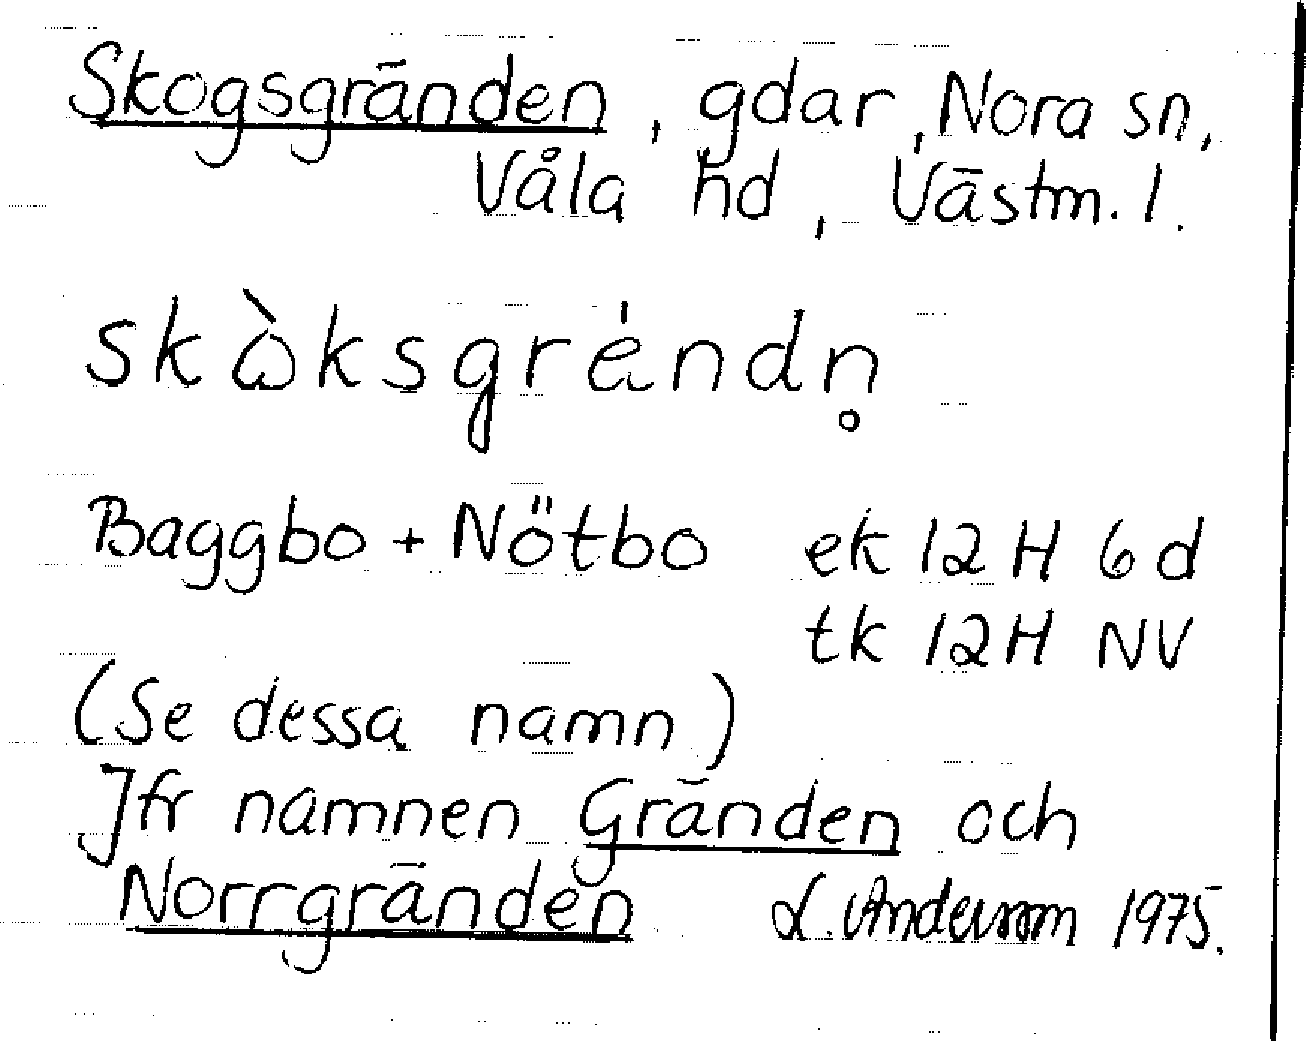 Skogsgränden, gdar, Nora sn,
Våla hd, Västm. l.
skɷ̀ksgrèndn̥
Baggbo + Nötbo ek 12 H 6 d
tk 12H NV
(Se dessa namn)
Jfr namnen Gränden och
Norrgränden L. Anderson 1975.